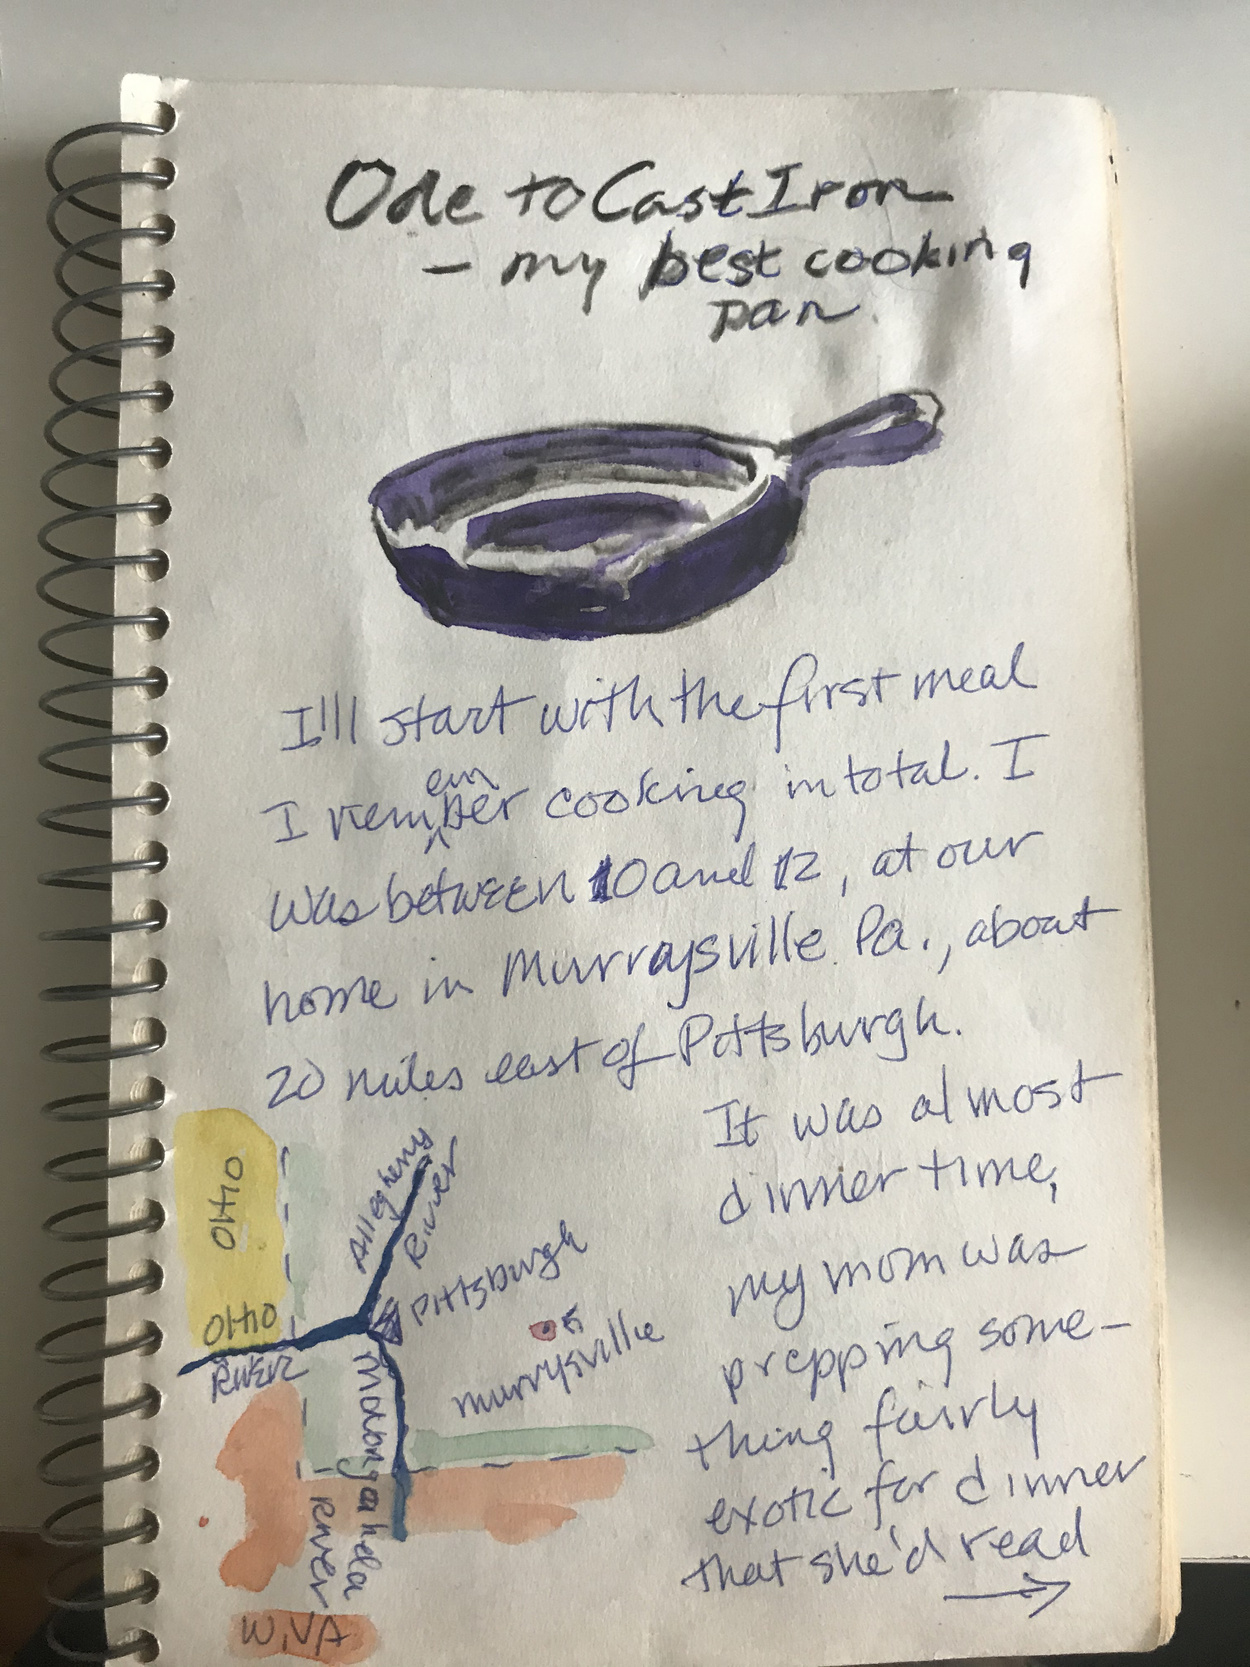 Ode to Cast Iron
– my best cooking
pan
I'll start with the first meal
em
I rem^ber cooking in total. I
was between 10 and 12, at our
home in Murraysville Pa., about
20 miles east of Pittsburgh.
It was almost
dinner time,
my mom was
prepping some–
thing fairly
exotic for dinner
that she'd read
→
OHIO
Allegheny
River
Pittsburgh
OHIO
RIVER
Murrysville
Monongahela
River
W.VA